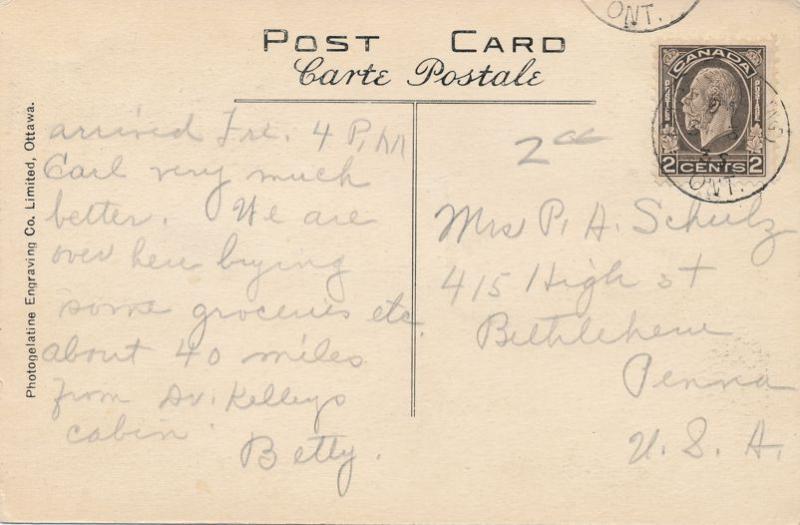 ONT.
POST CARD
Carte Postale
CANADA
POSTES POSTAGE
2 CENTS 2
35
ONT.
Photogelatine Engraving Co. Limited, Ottawa.
arrived Fri. 4 P.M
Carl very much
better. We are
over here buying
some groceries etc.
about 40 miles
from Dr. Kelleys
cabin.
Betty.
2cc
Mrs P. A. Schulz
415 High st
Bethlehem
Penna
U. S. A.